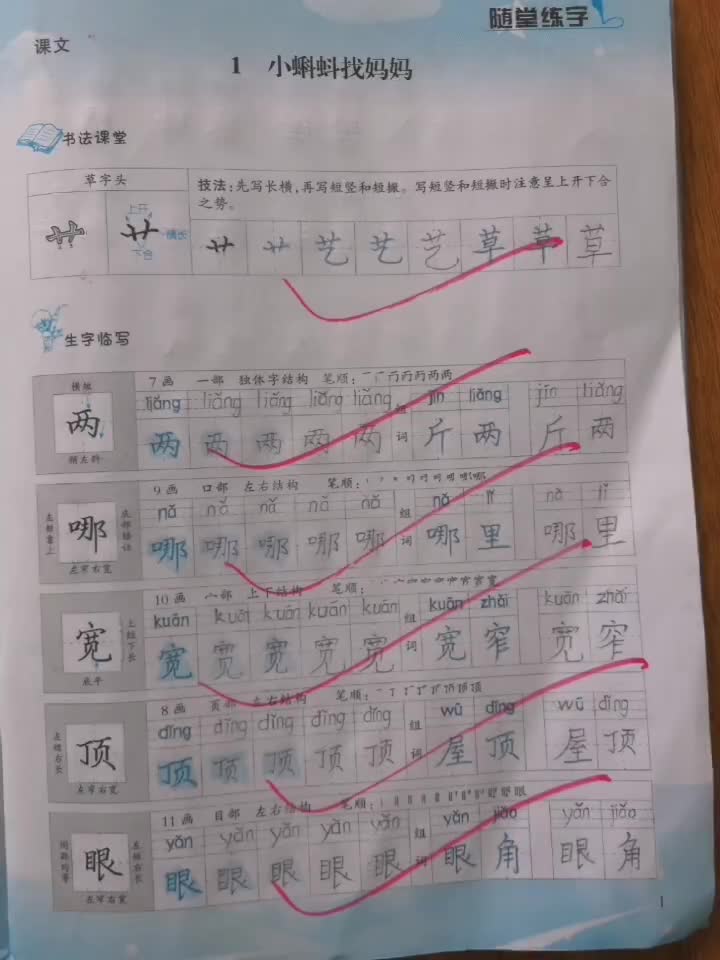 随堂练字
课文
1 小蝌蚪找妈妈
书法课堂
草字头
技法:先写长横,再写短竖和短撇。写短竖和短撇时注意呈上开下合
之势。
上开
横长
下合
艹 艹 艹 艹 艺 艺 艺 草 草 草
生字临写
横短
两
稍左斜
7画 一部 独体字结构 笔顺:
liǎng liǎng liǎng liǎng liǎng 组词 jīn liǎng jīn liǎng
两 两 两 两 两 斤 两 斤 两
左部靠上
哪
左窄右宽
9画 口部 左右结构 笔顺:
nǎ nǎ nǎ nǎ nǎ 组词 nǎ lǐ nǎ lǐ
哪 哪 哪 哪 哪 哪 里 哪 里
宽
上短下长
底平
10画 宀部 上下结构 笔顺:
kuān kuān kuān kuān kuān 组词 kuān zhǎi kuān zhǎi
宽 宽 宽 宽 宽 宽 窄 宽 窄
左短右长
顶
左窄右宽
8画 页部 左右结构 笔顺:
dǐng dǐng dǐng dǐng dǐng 组词 wū dǐng wū dǐng
顶 顶 顶 顶 顶 屋 顶 屋 顶
间距均等
眼
左短右长
左窄右宽
11画 目部 左右结构 笔顺:
yǎn yǎn yǎn yǎn yǎn 组词 yǎn jiǎo yǎn jiǎo
眼 眼 眼 眼 眼 眼 角 眼 角
1